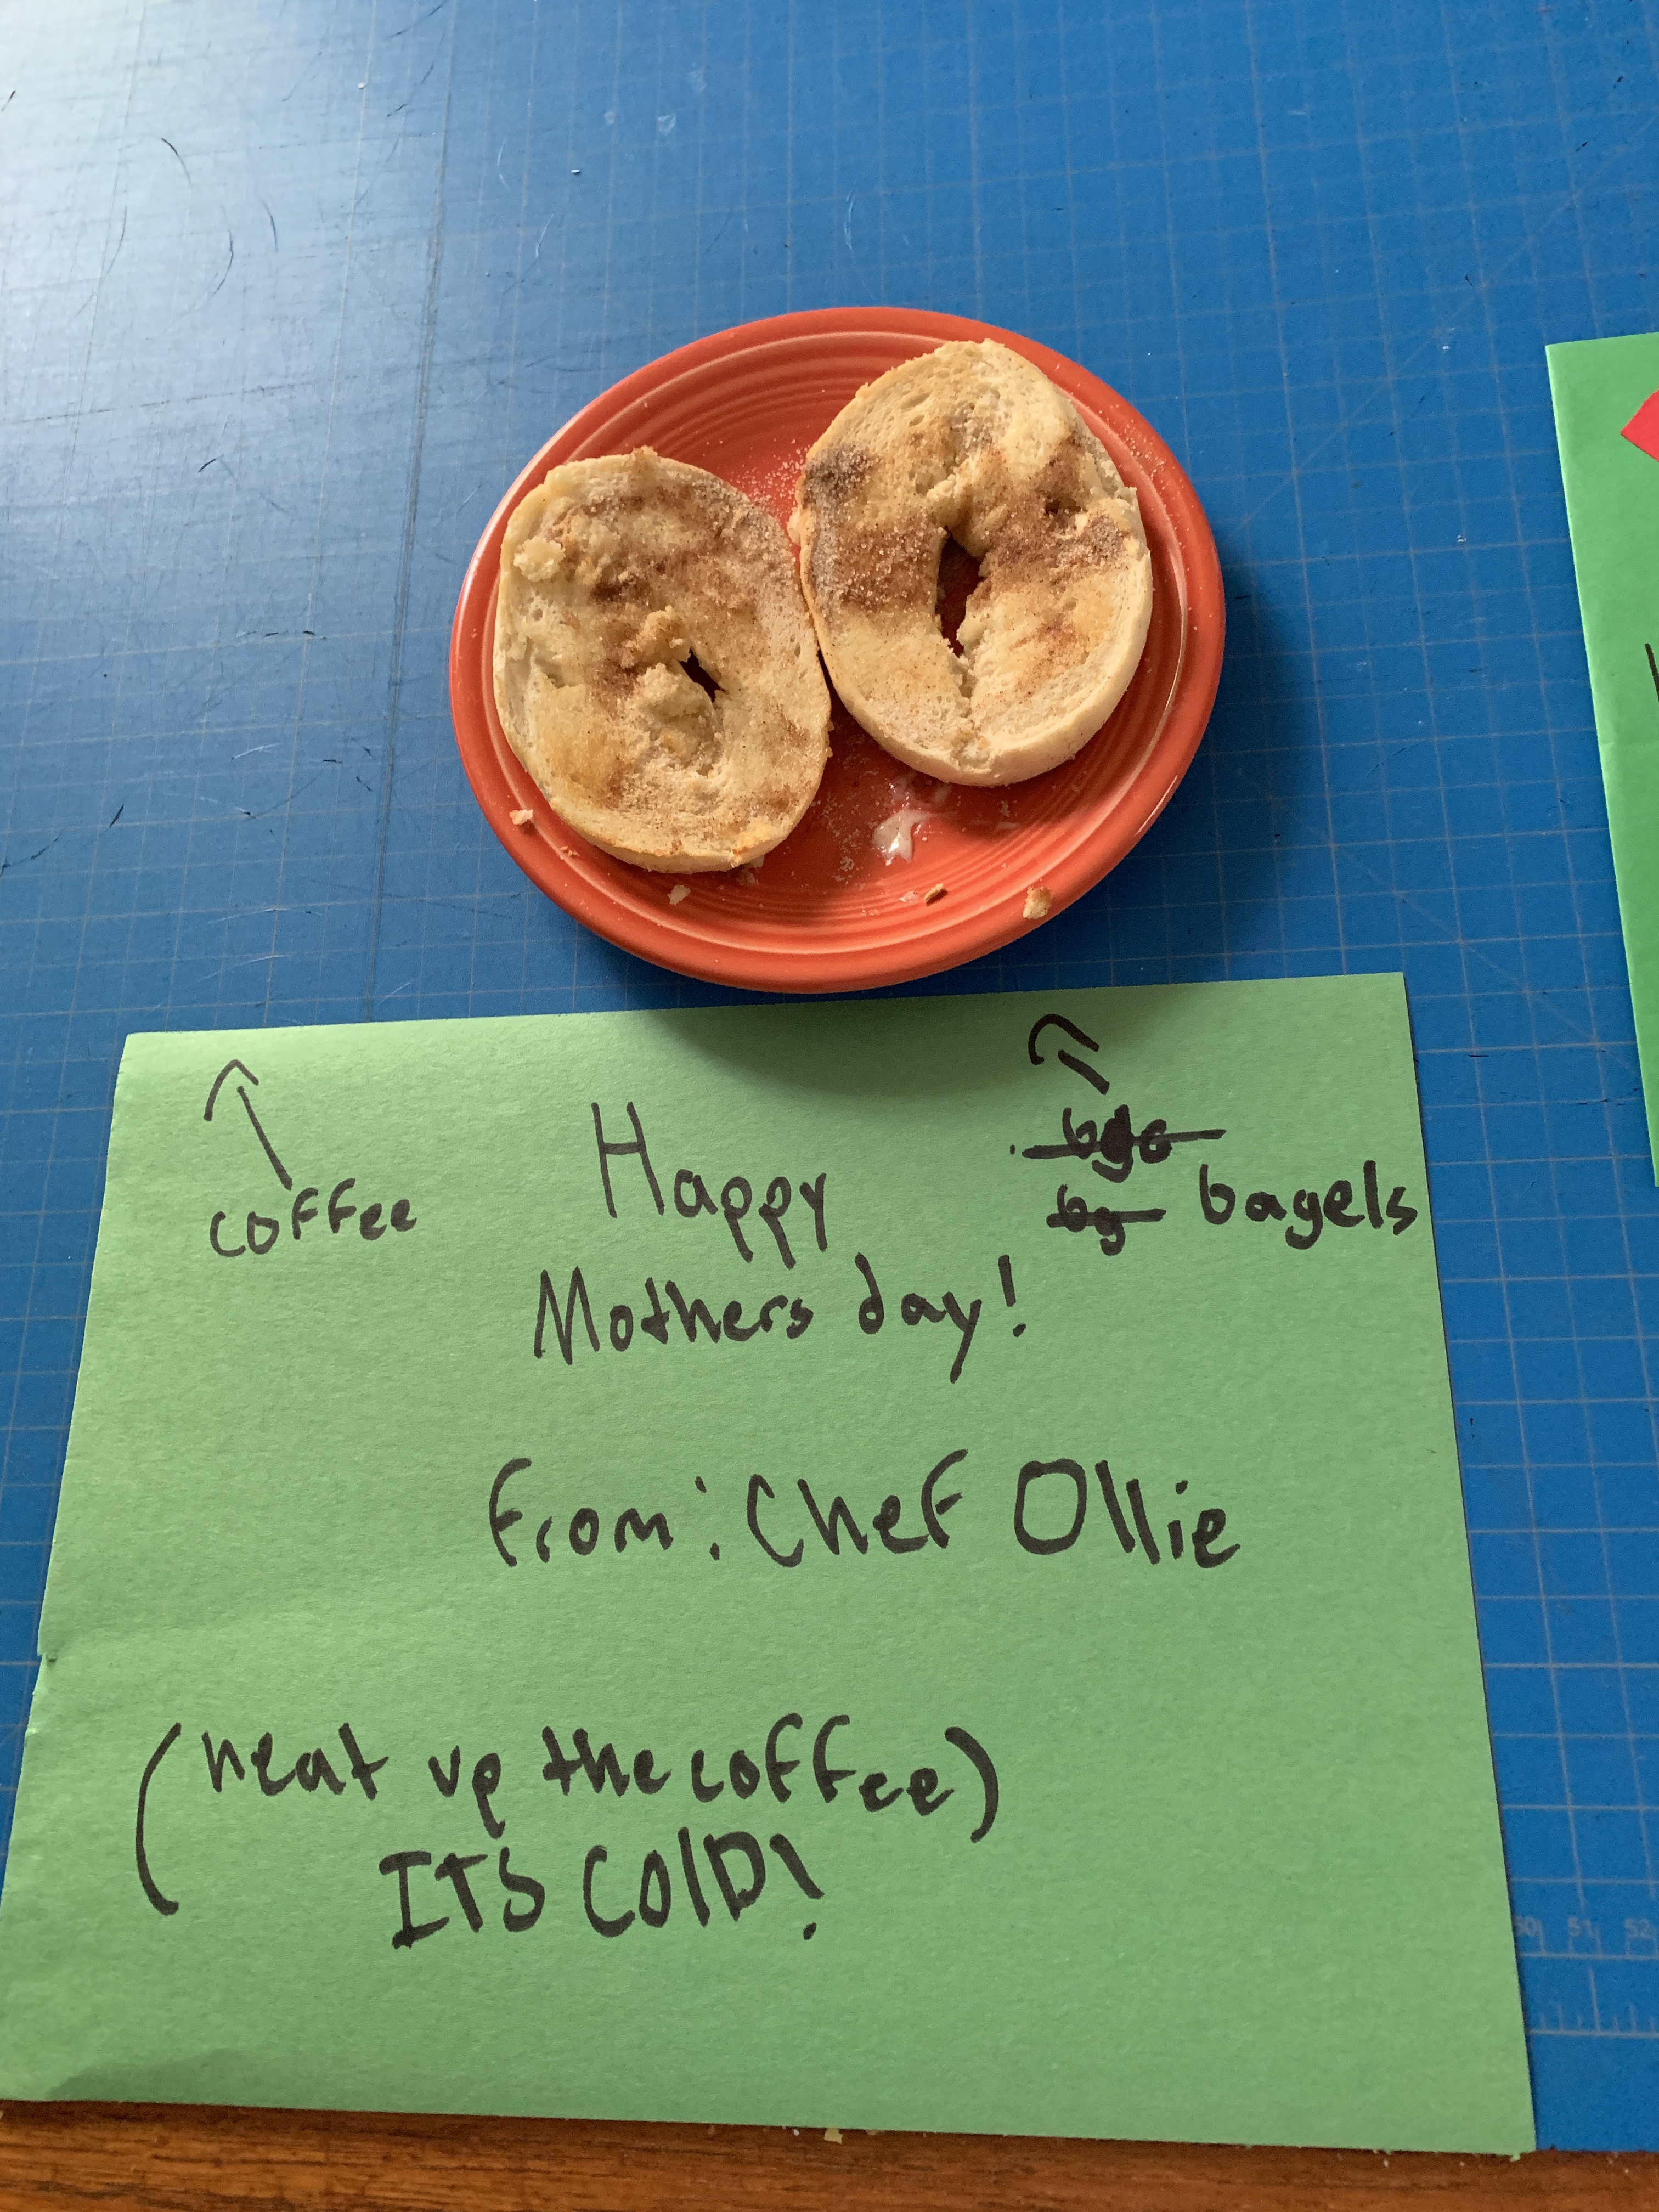 coffee
Happy
bagels
Mothers day!
From: Chef Ollie
(heat up the coffee)
ITS COlD!
50 51 52